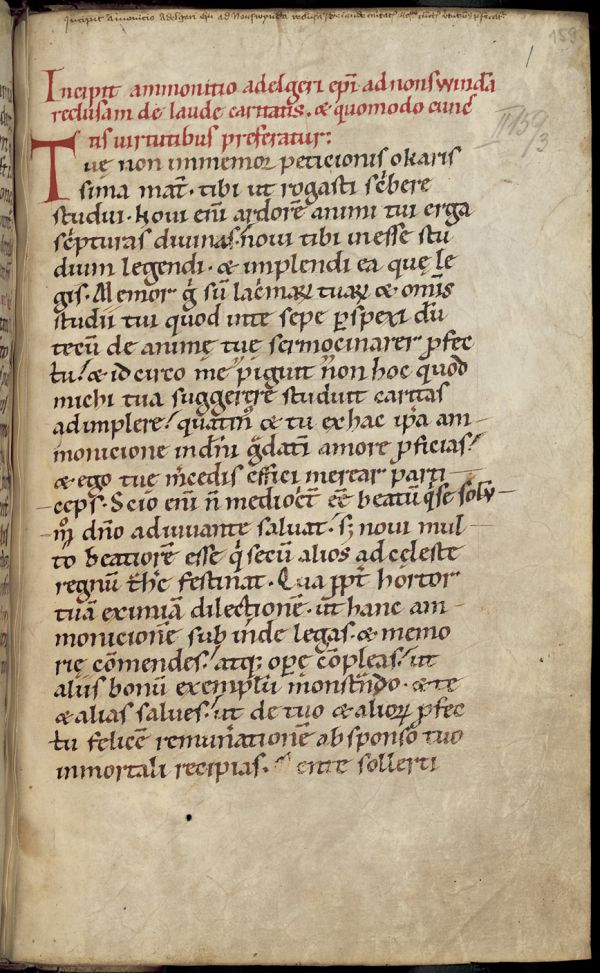 Incipit ammonitio adelgeri ep̄i ad nonswindā
reclusam de laude caritatis. & quomodo cunc
tis uirtutibus preferatur:
Tuę non inmemor peticionis o karis
sima mat̄. tibi ut rogasti sc̄bere
studui. Noui eni ardorē animi tui erga
sc̄pturas diuinas. noui tibi inesse stu
dium legendi. & implendi ea quę le
gis. Memor g̊ sū lac̄maꝝ tuaꝝ & om̄is
studii tui quod in te sepe ꝑspexi dū
tecū de animę tuę sermocinarer ꝓfec
tu! & idcirco me piguit non hoc quod
michi tua suggerere studuit caritas
adimplere! quatin⁹ & tu ex hac ip̄a am
monicione in dn̄i g̊dat̄i amore ꝓficias!
& ego tuę m̄cedis effici merear parti
ceps. Scio eni n̄ mediocr̄t eē̄ beatū q̊ se solū
m̊ dn̄o adiuuante saluat. sꝫ noui mul
to beatiorē esse q̊ secū alios ad celeste
regnū t̄h̄e festinat. Qua ꝓpt̄ hortor
tuā eximiā dilectionē. ut hanc am
monicionē sub inde legas. & memo
rię cōmendes! atqꝫ opę cōpleas! ut
aliis bonū exemplū monst̄ndo. & te
& alias salues. ut de tuo & alioꝝ ꝓfec
tu felicē remun̄ationē ab sponso tuo
inmortali recipias. ente sollerti
158
1
II 159/3